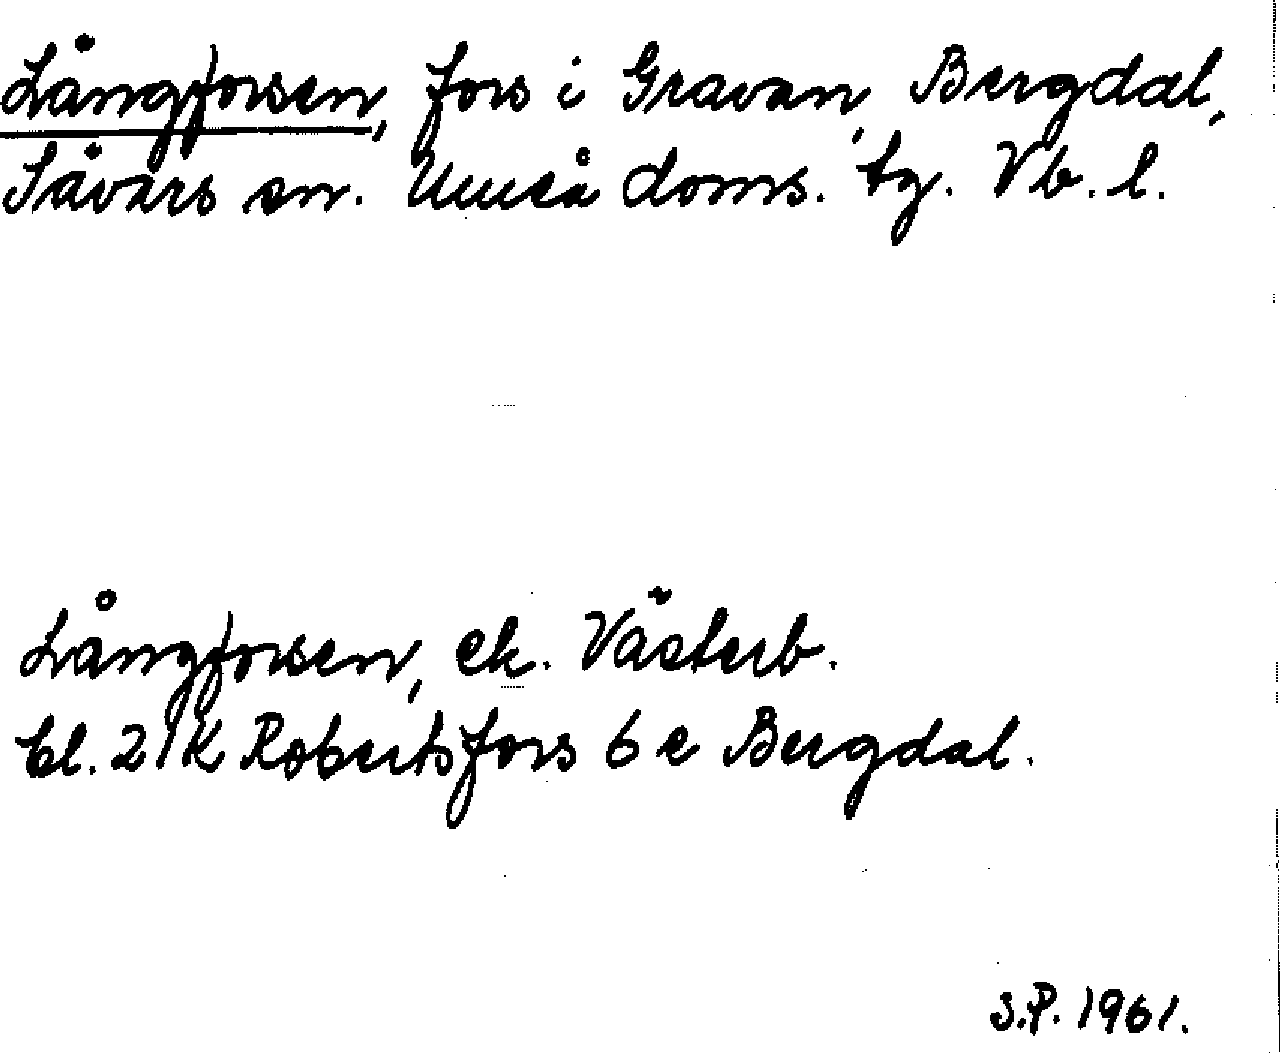 Långforsen, fors i Gravan, Bergdal,
Sävars sn. Umeå doms. tg. Vb. l.
Långforsen, ek. Västerb.
bl. 21K Robertsfors 6 e Bergdal.
S.P. 1961.